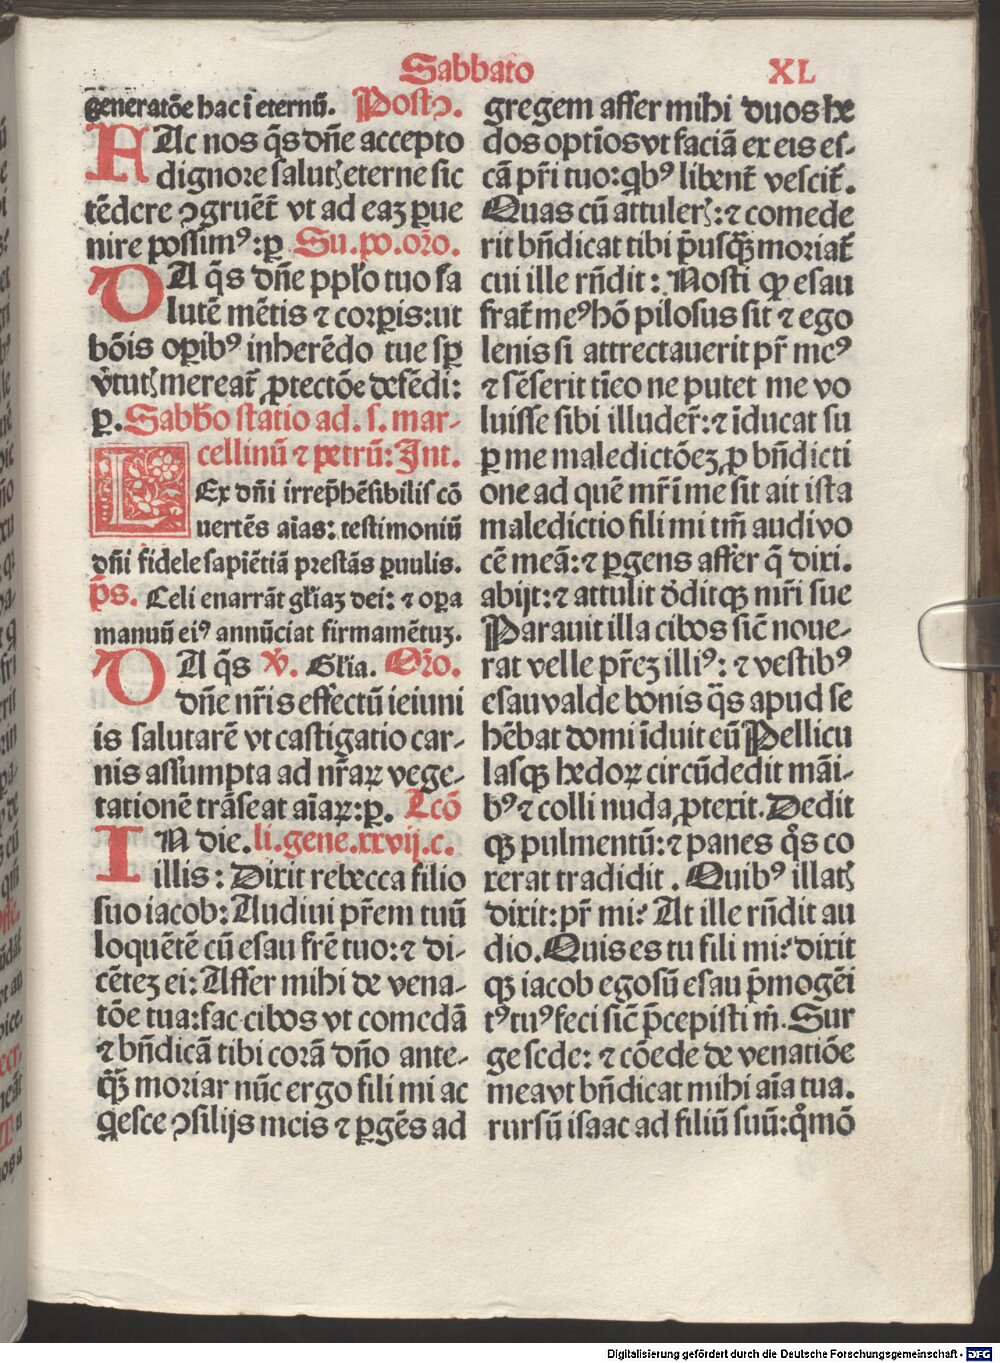 Sabbato
XL
generatōe hac ī eternū. Postↄ.
HAc nos q̄s dn̄e accepto
dignore salutꝫ eterne sic
tēdere ↄgruēt̄ vt ad eaꝫ ꝑue
nire possimꝰ: ꝑ Su. po. or̄o.
DA q̄s dn̄e pplo tuo sa
lutē mētis ⁊ corꝑis: ut
bōis oꝑibꝰ inherēdo tue sꝑ
v̄tutꝫ mereat̄ ꝓtectōe defēdi:
ꝑ. Sabb̄o statio ad. s. mar-
cellinū ⁊ petrū: Int.
LEx dn̄i irrep̄hēsibilis cō
uertēs aīas: testimoniū
dn̄i fidele sapiētiā prestās ꝑuulis.
p̄s. Celi enarrāt gl̄iaꝫ dei: ⁊ oꝑa
manuū eiꝰ annūciat firmamētuꝫ.
DA q̄s v̄. Gl̄ia. Or̄o.
dn̄e nr̄is effectū ieiuni
is salutarē vt castigatio car-
nis assumpta ad nr̄aꝝ vege-
tationē trāseat aīaꝝ: ꝑ. Lcō
IN die. li. gene. xxvij. c.
illis: Dixit rebecca filio
suo iacob: Audiui pr̄em tuū
loquētē cū esau fr̄e tuo: ⁊ di-
cēteꝫ ei: Affer mihi de vena-
tōe tua: fac cibos vt comedā
⁊ bn̄dicā tibi corā dn̄o ante-
qꝫ̄ moriar nūc ergo fili mi ac
q̄esce ↄsilijs meis ⁊ ꝑgēs ad
gregem affer mihi duos he
dos optīos vt faciā ex eis es-
cā pr̄i tuo: qbꝰ libent̄ vescit̄.
Quas cū attulerꝭ: ⁊ comede
rit bn̄dicat tibi p̄usqꝫ̄ moriat̄
cui ille rn̄dit: Nosti ꝙ esau
frat̄ meꝰ hō pilosus sit ⁊ ego
lenis si attrectauerit pr̄ meꝰ
⁊ sēserit tīeo ne putet me vo
luisse sibi illuder̄: ⁊ īducat su
ꝑ me maledictōeꝫ ꝓ bn̄dicti
one ad quē mr̄ īme sit ait ista
maledictio fili mi tm̄ audi vo
cē meā: ⁊ ꝑgens affer q̄ dixi.
abijt: ⁊ attulit ded̄itqꝫ mr̄i sue
Parauit illa cibos sic̄ noue-
rat velle pr̄eꝫ illiꝰ: ⁊ vestibꝰ
esau valde bonis q̄s apud se
hēbat domi īduit eū Pellicu
lasqꝫ hedoꝝ circūdedit māi-
bꝰ ⁊ colli nuda ꝓtexit. Dedit
qꝫ pulmentū: ⁊ panes q̊s co
xerat tradidit. Quibꝰ illatꝭ
dixit: pr̄ mi? At ille rn̄dit au
dio. Quis es tu fili mi? dixit
qꝫ iacob ego sū esau p̄mogēi
tꝰ tuꝰ feci sic̄ p̄cepisti m̄. Sur
ge sede: ⁊ cōede de venatiōe
mea vt bn̄dicat mihi aīa tua.
rursū isaac ad filiū suū: q̊mō
Digitalisierung gefördert durch die Deutsche Forschungsgemeinschaft - DFG